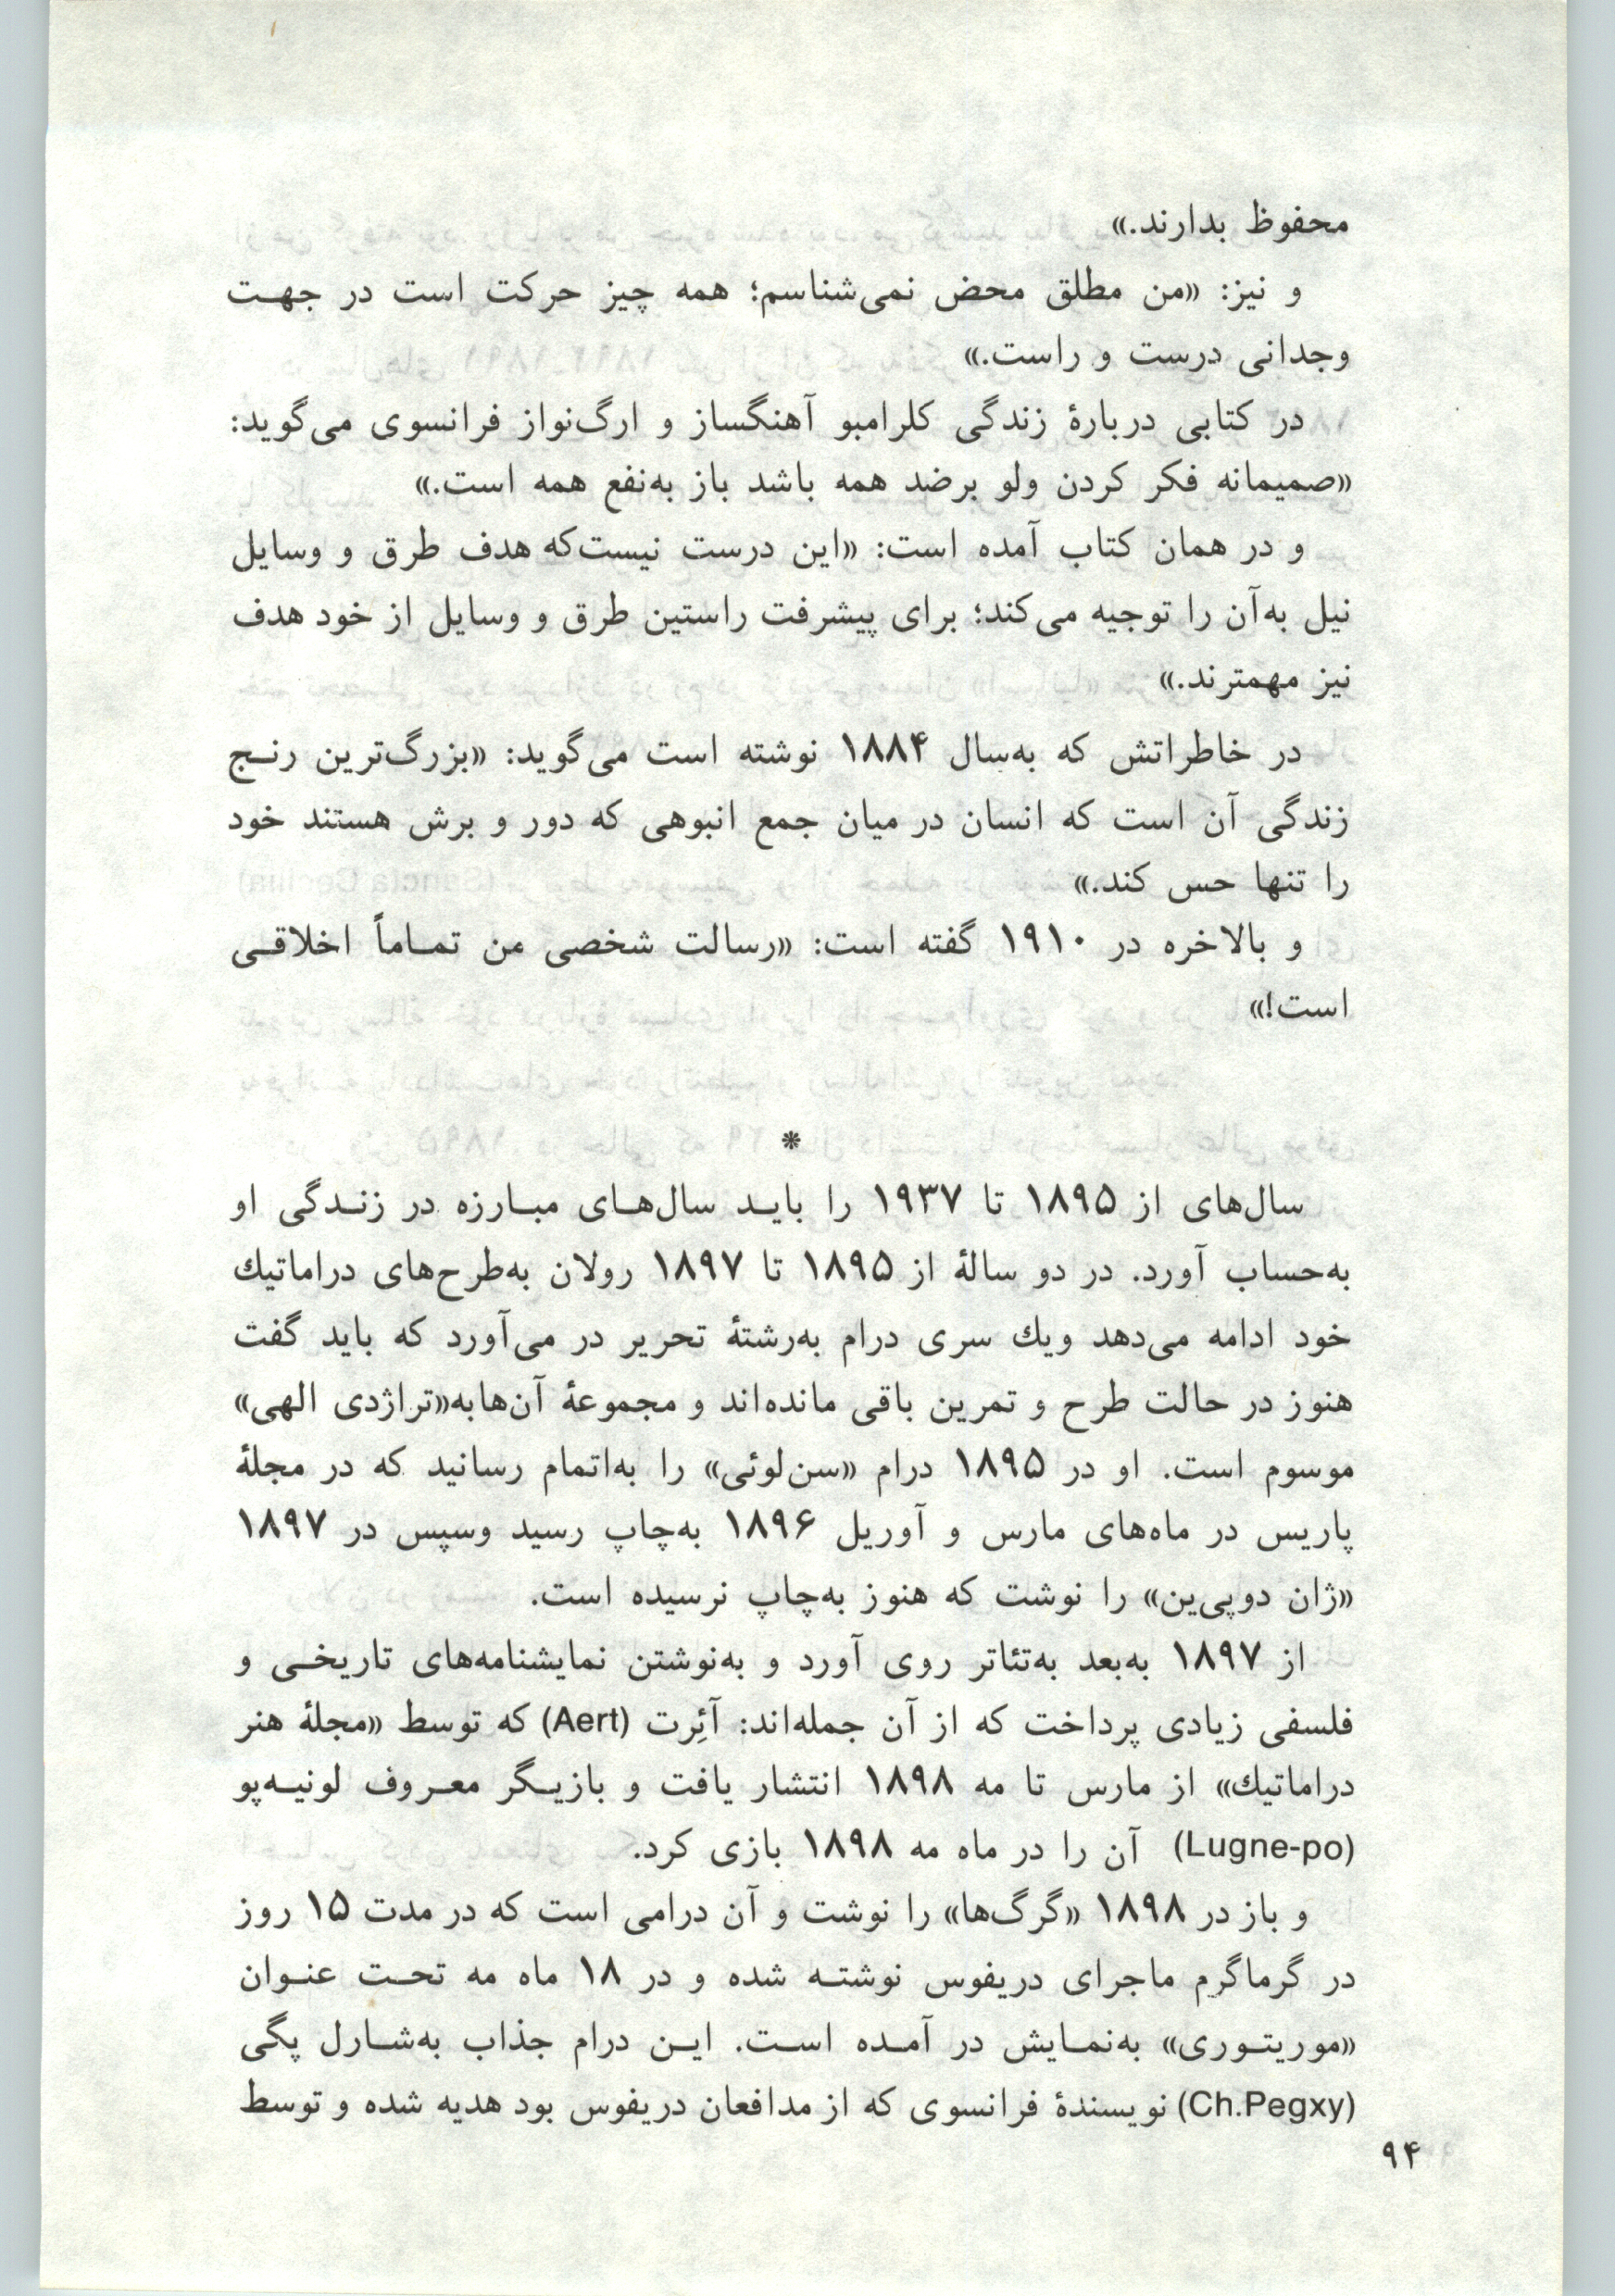 محفوظ بدارند.»
و نیز: «من مطلق محض نمی‌شناسم؛ همه چیز حرکت است در جهت
وجدانی درست و راست.»
در کتابی دربارهٔ زندگی کلرامبو آهنگساز و ارگ‌نواز فرانسوی می‌گوید:
«صمیمانه فکر کردن ولو برضد همه باشد باز به‌نفع همه است.»
و در همان کتاب آمده است: «این درست نیست‌که هدف طرق و وسایل
نیل به‌آن را توجیه می‌کند؛ برای پیشرفت راستین طرق و وسایل از خود هدف
نیز مهمترند.»
در خاطراتش که به‌سال ۱۸۸۴ نوشته است می‌گوید: «بزرگ‌ترین رنج
زندگی آن است که انسان در میان جمع انبوهی که دور و برش هستند خود
را تنها حس کند.»
و بالاخره در ۱۹۱۰ گفته است: «رسالت شخصی من تماماً اخلاقی
است!»
*
سال‌های از ۱۸۹۵ تا ۱۹۳۷ را باید سال‌های مبارزه در زندگی او
به‌حساب آورد. در دو سالهٔ از ۱۸۹۵ تا ۱۸۹۷ رولان به‌طرح‌های دراماتیك
خود ادامه می‌دهد ویك سری درام به‌رشتهٔ تحریر در می‌آورد که باید گفت
هنوز در حالت طرح و تمرین باقی مانده‌اند و مجموعهٔ آن‌هابه«تراژدی الهی»
موسوم است. او در ۱۸۹۵ درام «سن‌لوئی» را به‌اتمام رسانید که در مجلهٔ
پاریس در ماه‌های مارس و آوریل ۱۸۹۶ به‌چاپ رسید وسپس در ۱۸۹۷
«ژان دوپی‌ین» را نوشت که هنوز به‌چاپ نرسیده است.
از ۱۸۹۷ به‌بعد به‌تئاتر روی آورد و به‌نوشتن نمایشنامه‌های تاریخی و
فلسفی زیادی پرداخت که از آن جمله‌اند: آئِرت (Aert) که توسط «مجلهٔ هنر
دراماتیك» از مارس تا مه ۱۸۹۸ انتشار یافت و بازیگر معروف لونیه‌پو
(Lugne-po) آن را در ماه مه ۱۸۹۸ بازی کرد.
و باز در ۱۸۹۸ «گرگ‌ها» را نوشت و آن درامی است که در مدت ۱۵ روز
در گرماگرم ماجرای دریفوس نوشته شده و در ۱۸ ماه مه تحت عنوان
«موریتوری» به‌نمایش در آمده است. این درام جذاب به‌شارل پگی
(Ch.Pegxy) نویسندهٔ فرانسوی که از مدافعان دریفوس بود هدیه شده و توسط
۹۴